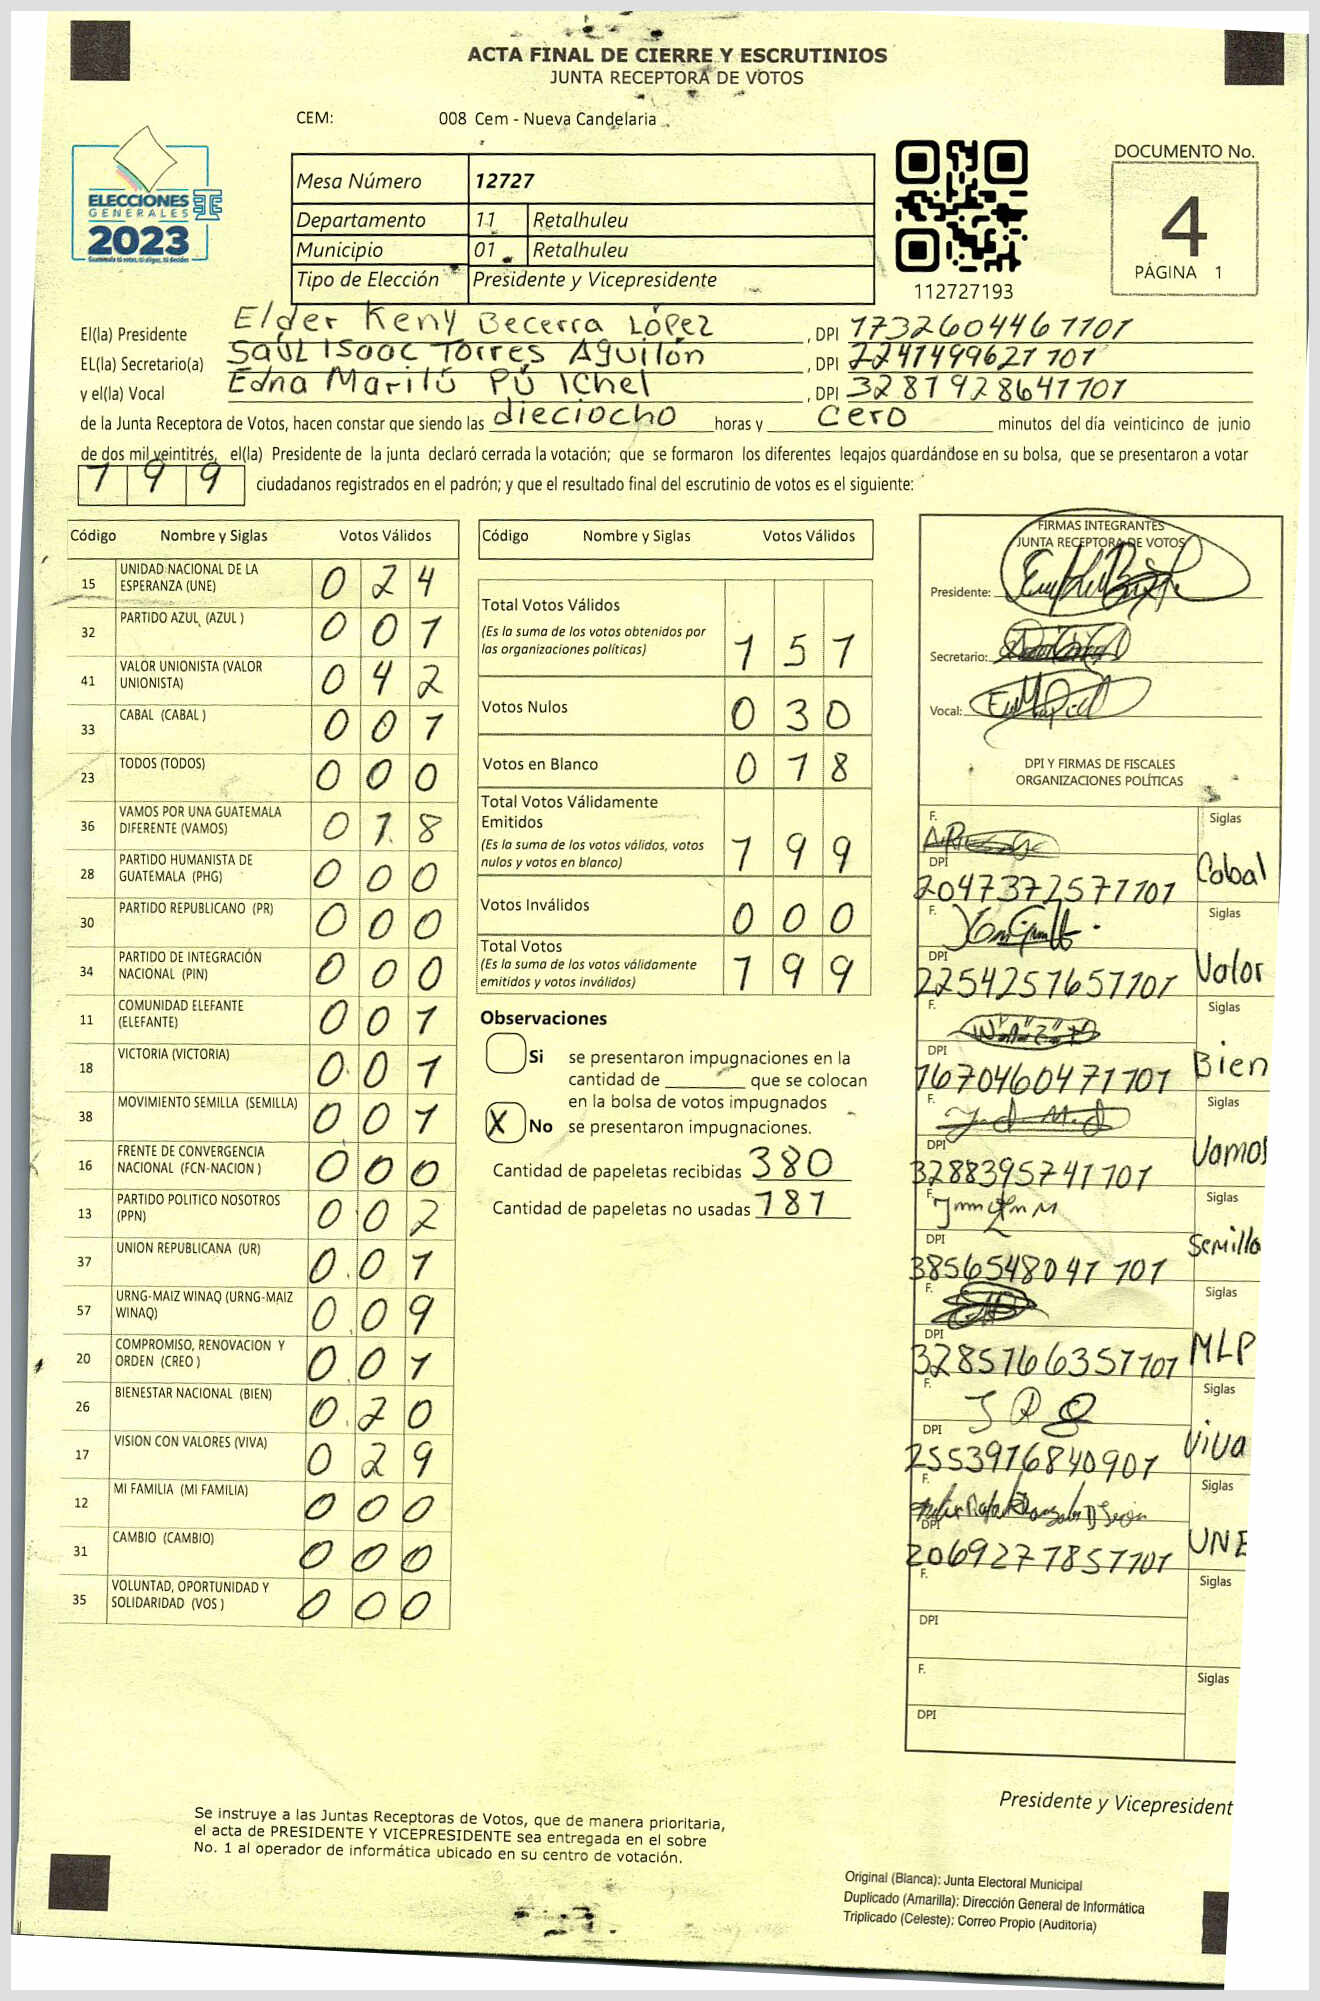 ACTA FINAL DE CIERRE Y ESCRUTINIOS
JUNTA RECEPTORA DE VOTOS
CEM: 008 Cem - Nueva Candelaria
ELECCIONES
GENERALES
2023
Guatemala tú votas, tú eliges, tú decides
Mesa Número 12727
Departamento 11 Retalhuleu
Municipio 01 Retalhuleu
Tipo de Elección Presidente y Vicepresidente
112727193
DOCUMENTO No.
4
PÁGINA 1
El(la) Presidente Elder Keny Becerra López , DPI 1732604461101
EL(la) Secretario(a) Saúl Isaac Torres Aguilón , DPI 2241499621101
y el(la) Vocal Edna Marilú Pú Ichel , DPI 3281928641101
de la Junta Receptora de Votos, hacen constar que siendo las dieciocho horas y cero minutos del día veinticinco de junio
de dos mil veintitrés, el(la) Presidente de la junta declaró cerrada la votación; que se formaron los diferentes legajos guardándose en su bolsa, que se presentaron a votar
199 ciudadanos registrados en el padrón; y que el resultado final del escrutinio de votos es el siguiente:
Código Nombre y Siglas Votos Válidos
15 UNIDAD NACIONAL DE LA ESPERANZA (UNE) 024
32 PARTIDO AZUL (AZUL ) 001
41 VALOR UNIONISTA (VALOR UNIONISTA) 042
33 CABAL (CABAL ) 001
23 TODOS (TODOS) 000
36 VAMOS POR UNA GUATEMALA DIFERENTE (VAMOS) 018
28 PARTIDO HUMANISTA DE GUATEMALA (PHG) 000
30 PARTIDO REPUBLICANO (PR) 000
34 PARTIDO DE INTEGRACIÓN NACIONAL (PIN) 000
11 COMUNIDAD ELEFANTE (ELEFANTE) 001
18 VICTORIA (VICTORIA) 001
38 MOVIMIENTO SEMILLA (SEMILLA) 001
16 FRENTE DE CONVERGENCIA NACIONAL (FCN-NACION ) 000
13 PARTIDO POLITICO NOSOTROS (PPN) 002
37 UNION REPUBLICANA (UR) 001
57 URNG-MAIZ WINAQ (URNG-MAIZ WINAQ) 009
20 COMPROMISO, RENOVACION Y ORDEN (CREO ) 001
26 BIENESTAR NACIONAL (BIEN) 020
17 VISION CON VALORES (VIVA) 029
12 MI FAMILIA (MI FAMILIA) 000
31 CAMBIO (CAMBIO) 000
35 VOLUNTAD, OPORTUNIDAD Y SOLIDARIDAD (VOS ) 000
Código Nombre y Siglas Votos Válidos
Total Votos Válidos
(Es la suma de los votos obtenidos por
las organizaciones politicas) 151
Votos Nulos 030
Votos en Blanco 018
Total Votos Válidamente
Emitidos
(Es la suma de los votos válidos, votos
nulos y votos en blanco) 199
Votos Inválidos 000
Total Votos
(Es la suma de los votos válidamente
emitidos y votos inválidos) 199
Observaciones
Si se presentaron impugnaciones en la
cantidad de ________ que se colocan
en la bolsa de votos impugnados
X No se presentaron impugnaciones.
Cantidad de papeletas recibidas 380
Cantidad de papeletas no usadas 181
FIRMAS INTEGRANTES
JUNTA RECEPTORA DE VOTOS
Presidente:
Secretario:
Vocal:
DPI Y FIRMAS DE FISCALES
ORGANIZACIONES POLÍTICAS
F. Siglas
DPI 2047372571101 Cabal
F. Siglas
DPI 2254251651101 Valor
F. Siglas
DPI 1670460471101 Bien
F. Siglas
DPI 3288395741101 Vamos
F. Siglas
DPI 3856548041101 Semilla
F. Siglas
DPI 3285166351101 MLP
F. Siglas
DPI 2553916840901 Viva
F. Siglas
DPI 2069277851101 UNE
F. Siglas
DPI
F. Siglas
DPI
Presidente y Vicepresident
Se instruye a las Juntas Receptoras de Votos, que de manera prioritaria,
el acta de PRESIDENTE Y VICEPRESIDENTE sea entregada en el sobre
No. 1 al operador de informática ubicado en su centro de votación.
Original (Blanca): Junta Electoral Municipal
Duplicado (Amarilla): Dirección General de Informática
Triplicado (Celeste): Correo Propio (Auditoria)